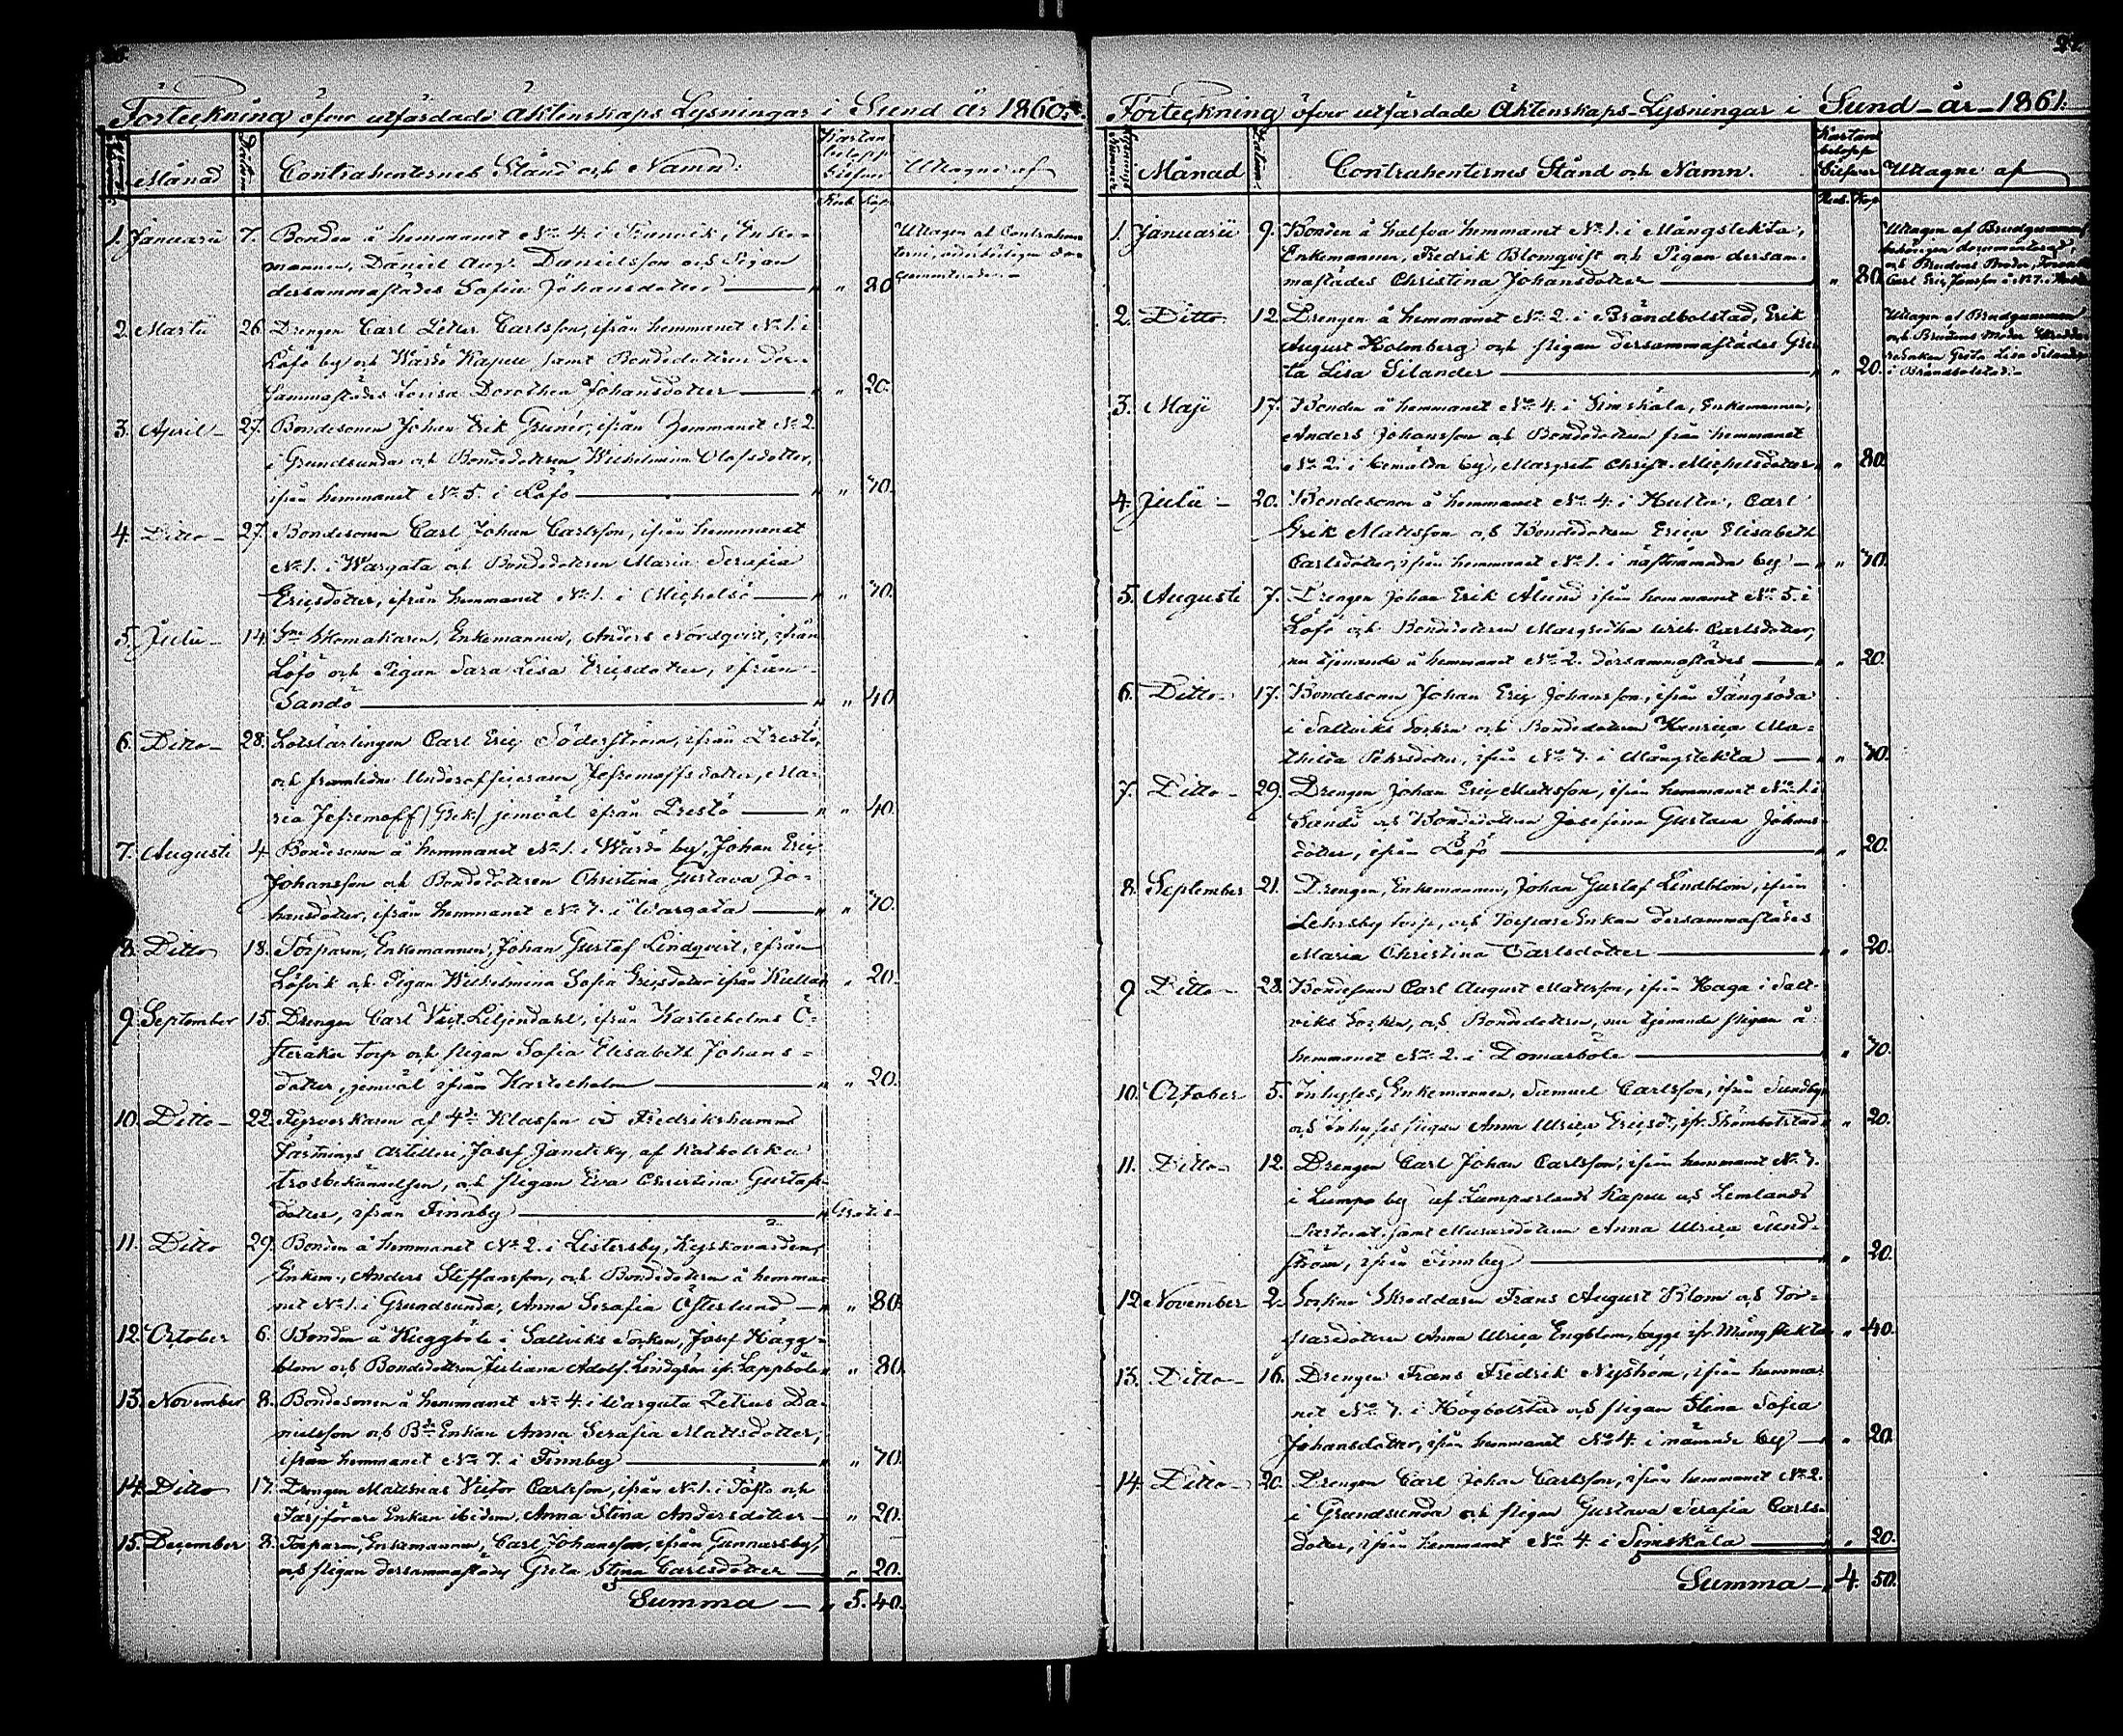 Förteckning öfver utfärdade Äktenskaps Lysningar i Sund år 1860.
Månad Datum Contrahenternes Stånd och Namn. Kartans belopp Silfver Uttagne af
Rub. Kop.
1. Januarii 7. Bonden å hemmanet No 4. i Strnvik, Enke-
mannen, Daniel Aug. Danielsson och Pigan
dersammastädes Sofia Johansdotter " 80.
2. Martii 26. Drengen Carl Petter Carlsson, ifrån hemmanet No 1. i
Löfö by och Wårdö Kapell samt Bondedottren der-
sammastädes Lovisa Dorothea Johansdotter " " 20.
3. April 27. Bondesonen Johan Erik Grenér, ifrån hemmanet No 2.
i Grundsunda och Bondedottren Wilhelmina Olofsdotter,
ifrån hemmanet No 5. i Löfö " " 70.
4. Ditto 27. Bondesonen Carl Johan Carlsson, ifrån hemmanet
No 1. i Wargata och Bondedottren Maria Serafia
Ericsdotter, ifrån hemmanet No 1. i Michelsö " " 70.
5. Julii 14. Skomakaren, Enkemannen, Anders Nordqvist, ifrån
Löfö och Pigan Sara Lisa Ericsdotter, ifrån
Sandö " " 40.
6. Ditto 28. Lotslärlingen Carl Eric Söderström, ifrån Prestö,
och framlidne Underofficeraren Jefremoffs dotter, Ma-
ria Jefremoff /Grek/ jemväl ifrån Prestö " " 40.
7. Augusti 4. Bondesonen å hemmanet No 1. i Wårdö by, Johan Eric
Johansson och Bondedottren Christina Gustava Jo-
hansdotter, ifrån hemmanet No 7. i Wargata " " 70.
8. Ditto 18. Torparen, Enkemannen, Johan Gustaf Lindqvist, ifrån
Löfvik och Pigan Wilhelmina Sofia Ericsdotter ifrån Kulla " 20.
9. September 15. Drengen Carl Vict. Liljendahl, ifrån Kastelholms Ö-
steråker torp och pigan Sofia Elisabeth Johans-
dotter, jemväl ifrån Kastelholm " " 20.
10. Ditto 22. Fyrverkaren af 4de Klassen vid Fredrikshamns
Fästnings Artilleri, Josef Janetsky, af Katholska
trosbekännelsen, och pigan Eva Christina Gustafs-
dotter, ifrån Finnby " Gratis
11. Ditto 29. Bonden å hemmanet No 2. i Listersby, Kyrkovärden,
Enkem., Anders Steffansson, och Bondedottren å hemma-
net No 1. i Grundsunda, Anna Serafia Österlund " " 80.
12. October 6. Bonden å Kuggböle i Saltviks Socken, Josef Hägg-
blom och Bondedottren Juliana Adolf. Lindgren ifr. Lappböle " 80.
13. November 8. Bondesonen å hemmanet No 4. i Wargata Petrus Da-
nielsson och Bde Enkan Anna Serafia Mattsdotter,
ifrån hemmanet No 7. i Finnby " " 70.
14. Ditto 17. Drengen Mattias Victor Carlsson, ifrån No 1. i Töftö och
Färjförare Enkan ibidem, Anna Stina Andersdotter " 20.
15. December 8. Torparen, Enkemannen, Carl Johansson, ifrån Gunnarsby,
och pigan dersammastädes Greta Stina Carlsdotter " 20.
Summa " 5. 40.
Uttagen af Contrahen-
terne
Förteckning öfver utfärdade Äktenskaps-Lysningar i Sund år 1861.
Månad Datum Contrahenternes Stånd och Namn. Kartans belopp Silfver Uttagne af
Rub. Kop.
1. Januarii 9. Bonden å halfva hemmanet No 1. i Mångstekta,
Enkemannen, Fredrik Blomqvist och Pigan dersam-
mastädes Christina Johansdotter " 80.
2. Ditto 12. Drengen å hemmanet No 2. i Brändbolstad, Erik
August Holmberg och pigan dersammastädes Gre-
ta Lisa Silander " 20.
3. Maji 17. Bonden å hemmanet No 4. i Simskäla, Enkemannen,
Anders Johansson och Bondedottren från hemmanet
No 2. i bemälda by, Margreta Christ. Michelsdotter " 80.
4. Julii 20. Bondesonen å hemmanet No 4. i Hulta, Carl
Erik Mattsson och Bondedottren Erica Elisabeth
Carlsdotter, ifrån hemmanet No 1. i nästnämnda by " " 70.
5. Augusti 7. Drengen Johan Erik Ålund ifrån hemmanet No 5. i
Löfö och Bondedottren Margretha Ulrik. Carlsdotter,
nu tjenande å hemmanet No 2. dersammastädes " 20.
6. Ditto 17. Bondesonen Johan Eric Johansson, ifrån Tängsöda
i Saltviks Socken och Bondedottren Henrica Ma-
thilda Pehrsdotter, ifrån No 7. i Mångstekta " " 70.
7. Ditto 29. Drengen Johan Eric Mattsson, ifrån hemmanet No 1. i
Sandö och Bondedottren Josefina Gustava Johans-
dotter, ifrån Löfö " " 20.
8. September 21. Drengen, Enkemannen, Johan Gustaf Lindblom, ifrån
Lehrsby torp, och Torpare Enkan dersammastädes
Maria Christina Carlsdotter " " 20.
9. Ditto 28. Bondesonen Carl August Mattsson, ifrån Haga i Salt-
viks Socken, och Bondedottren, nu tjenande pigan å
hemmanet No 2. i Domarböle " 70.
10. October 5. Inhyses, Enkemannen, Samuel Carlsson, ifrån Sundby,
och inhyses pigan Anna Ulrica Ericsd., ifr. Strömbolstad " 20.
11. Ditto 12. Drengen Carl Johan Carlsson, ifrån hemmanet No 7.
i Lumpo by af Lumparlands Kapell och Lemlands
Pastorat, samt Muraredottren Anna Ulrica Sund-
ström, ifrån Finnby " 20.
12. November 2. Sockne Skreddaren Frans August Blom och Tor-
paredottren Anna Ulrica Engblom, begge ifr. Mångstekta " 40.
13. Ditto 16. Drengen Frans Fredrik Nyström, ifrån hemma-
net No 7. i Högbolstad och pigan Stina Sofia
Johansdotter, ifrån hemmanet No 4. i nämnde by " 20.
14. Ditto 20. Drengen Carl Johan Carlsson, ifrån hemmanet No 2.
i Grundsunda och pigan Gustava Serafia Carls-
dotter, ifrån hemmanet No 4. i Simskäla " 20.
Summa " 4. 50.
Uttagen af Brudgummen,
och Brudens Broder,
Carl Eric Jansson å No 7. i
Uttagen af Brudgummen
och Brudens Moder
Enkan Greta Lisa Silander
i Brändbolstad.